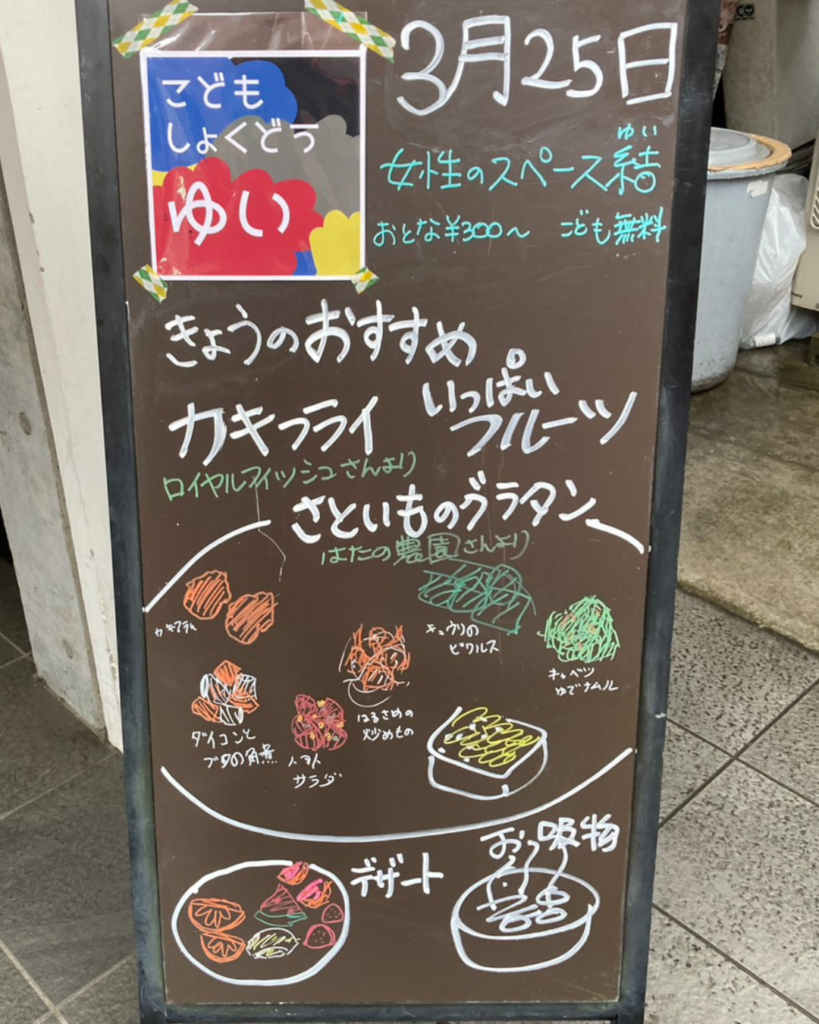 こども
しょくどう
ゆい
3月25日
ゆい
女性のスペース結
おとな¥300〜 こども無料
きょうのおすすめ
カキフライ
いっぱい
フルーツ
ロイヤルフィッシュさんより
さといものグラタン
はたの農園さんより
カキフライ
キュウリの
ピクルス
キャベツ
ゆでナムル
はるさめの
炒めもの
ダイコンと
ブタの角煮
トマト
サラダ
おっ吸物
デザート